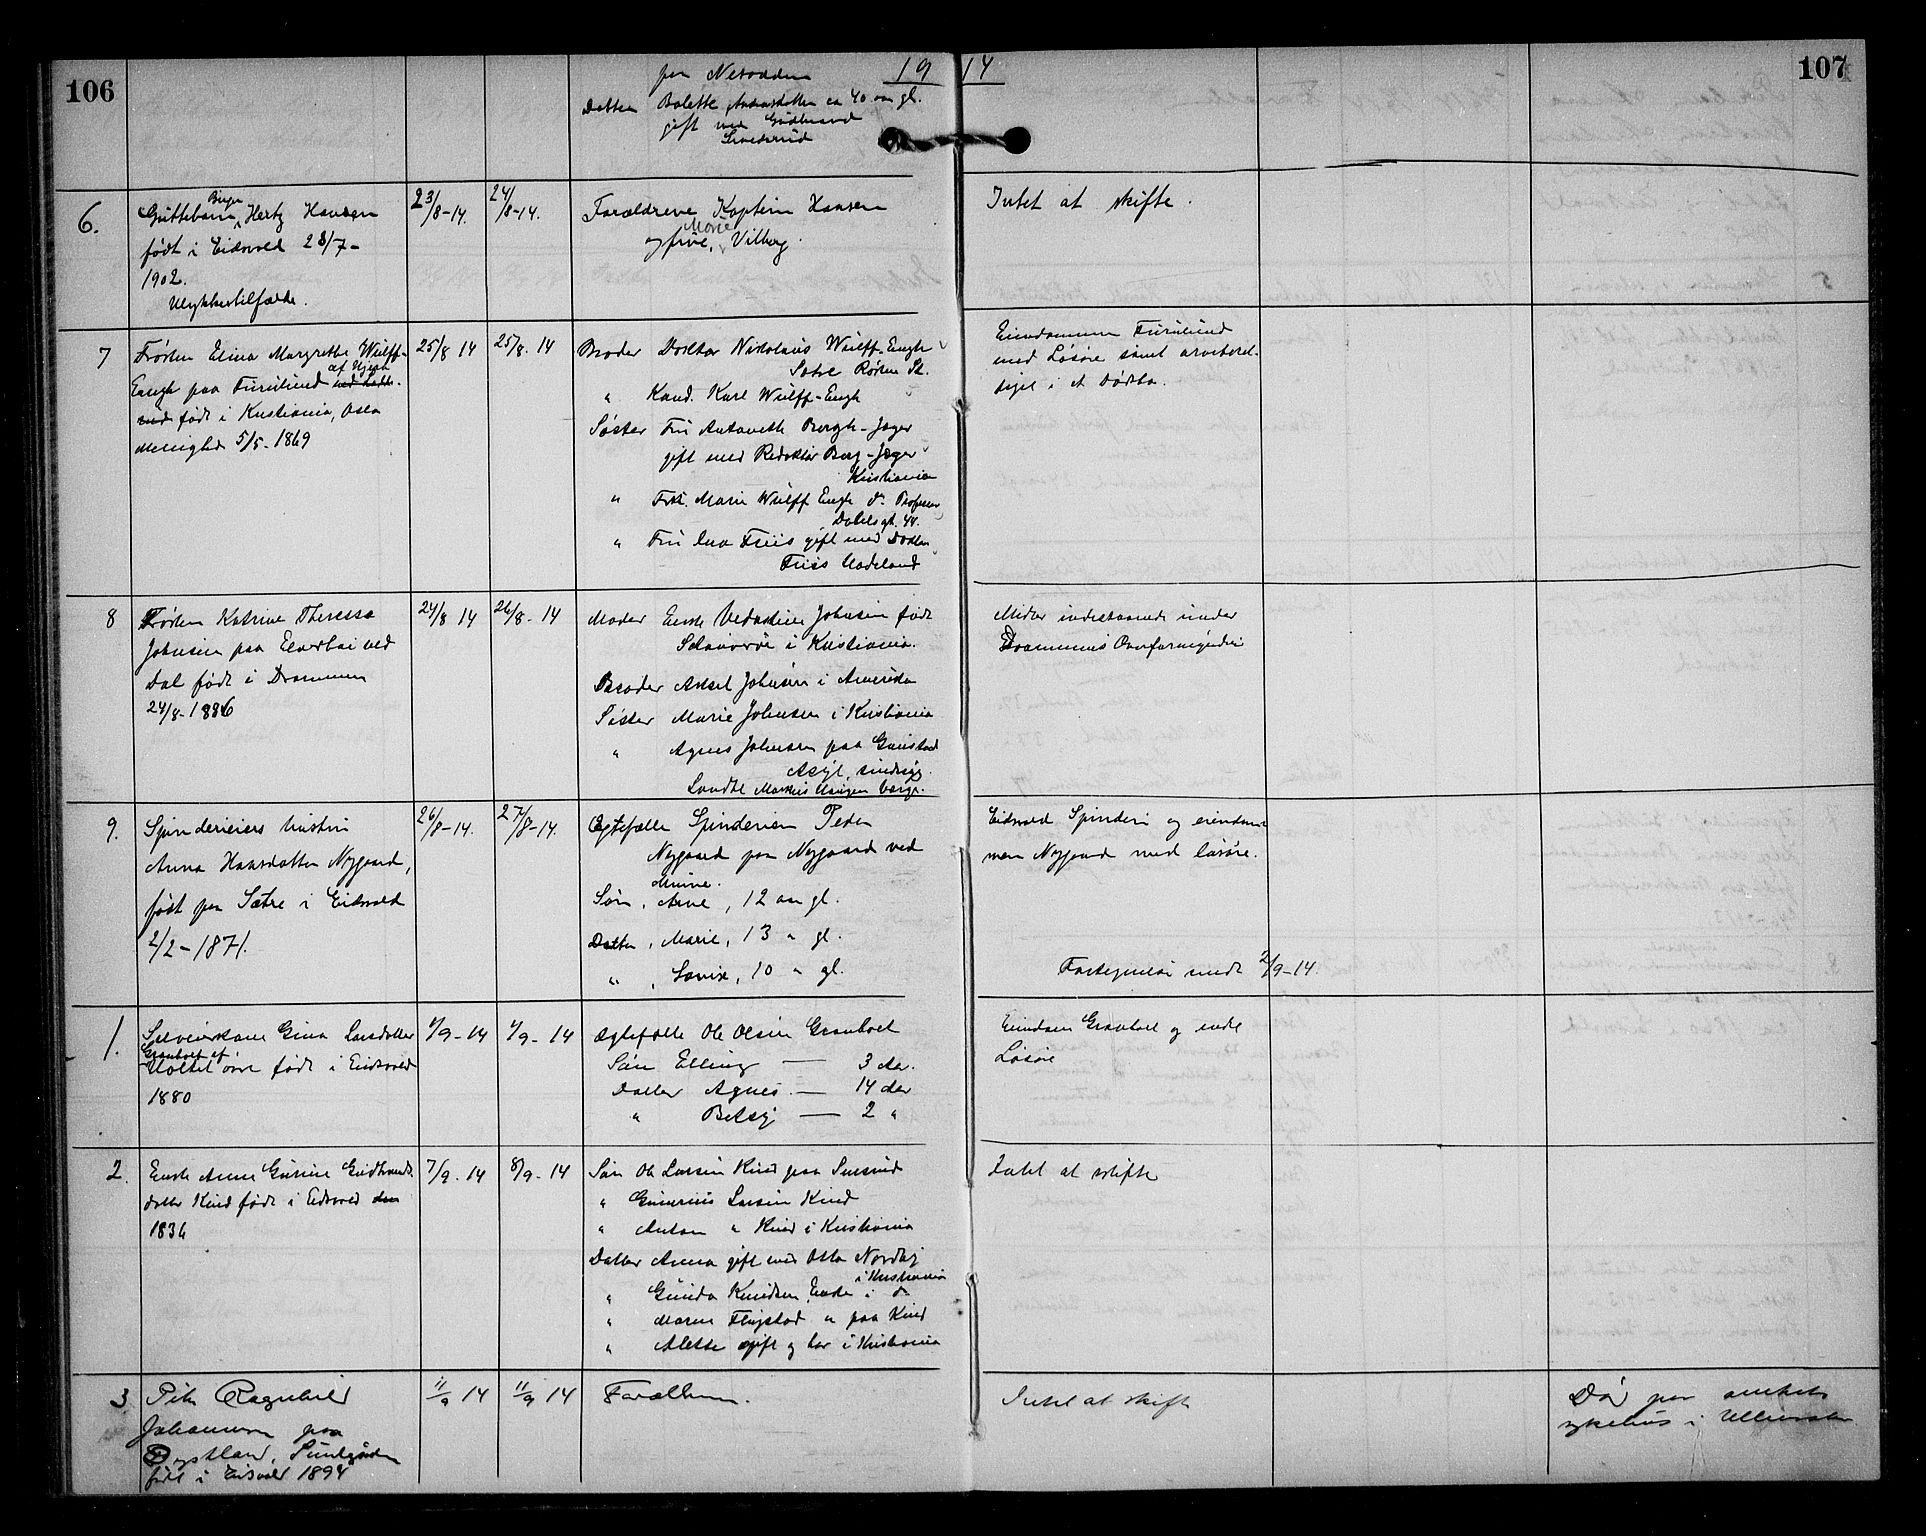 106
19 14
107
paa Nesodden
Datter Bolette Andersdatter ca 40 aar gl.
gift med Gudbrand
6.
Guttebarn Birger Hertz Hansen
født i Eidsvold 28/7-
1902.
Ulykkestilfælde.
23/8-14.
24/8-14.
Forældrene Kaptein Hansen
og frue, Marie Vilberg.
Intet at skifte.
7
Frøken Elina Margrethe Wulff-
Engh paa Furulund
født i Kristiania, Oslo
Menighed 5/5-1869
25/8 14
25/8. 14
Broder Doktor Nikolaus Wulff-Engh
Sætre Røken St.
" Kand. Karl Wulff-Engh
Søster Fru Antonette Bergh-Jæger
gift med Redaktør Berg-Jæger
Kristiania
" Frk. Marie Wulff Engh do Professor
Dahlsgt. 44.
" Fru Ina Friis gift med Doktor
Friis Hadeland
Eiendommen Furulund
med Løsøre samt
i et Dødsbo.
8
Frøken Katrine Theresse
Johnsen paa ved
Dal født i Drammen
24/8-1886
24/8 14
26/8-14
Moder Enke Johnsen født
i Kristiania.
Broder Aksel Johnsen i Amerika
Søster Marie Johnsen i Kristiania
" Agnes Johnsen paa Gaustad
Asyl, sindssyg.
Midler indestaaende under
Drammens Overformynderi
9.
Spinderieiers hustru
Anna Hansdatter Nygaard,
født paa Sætre i Eidsvold
2/2-1871.
26/8-14.
27/8-14.
Egtefælle Spinderieier Peder
Nygaard paa Nygaard ved
Minne.
Søn, Arne, 12 aar gl.
Datter, Marie, 13 " gl.
" , Lovise, 10 " gl.
Eidsvold Spinderi og eiendom-
men Nygaard med løsøre.
Fortegnelse sendt 2/9-14.
1.
Selveierkone Gina Larsdatter
Granholt af
født i Eidsvold
1880
1/9-14
1/9-14
Ægtefælle Ole Olsen Granholt
Søn Elling — 3 Aar.
Datter Agnes — 14 Aar
" Betsy — 2 "
Eiendom Granholt og
Løsøre
2.
Enke Anne Gurine Gudbrands-
datter Kind født i Eidsvold
1836
7/9. 14
8/9-14
Søn Ole Larsen Kind paa
" Gunerius Larsen Kind
" Anton " Kind i Kristiania
Datter Anna gift med Otto Nordby
i Kristiania
" Gunda Knudsen, Enke i do
" Maren Flugstad " paa Kind
" Alette gift og bor i Kristiania
Intet at skifte
3.
Pike Ragnhild
Johansen paa
født i Eidsvold 1894
11/9 14
11/9 14
Forældrene.
Intet at skifte
Død paa amtets
sykehus i Ullensaker